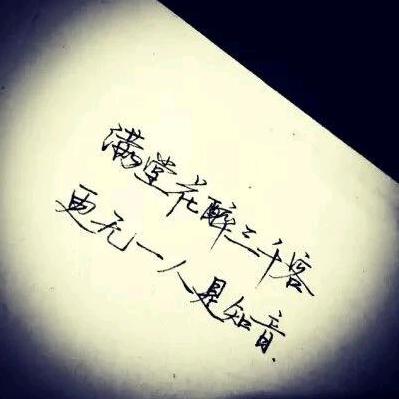 满堂花醉三千客
更无一人是知音.